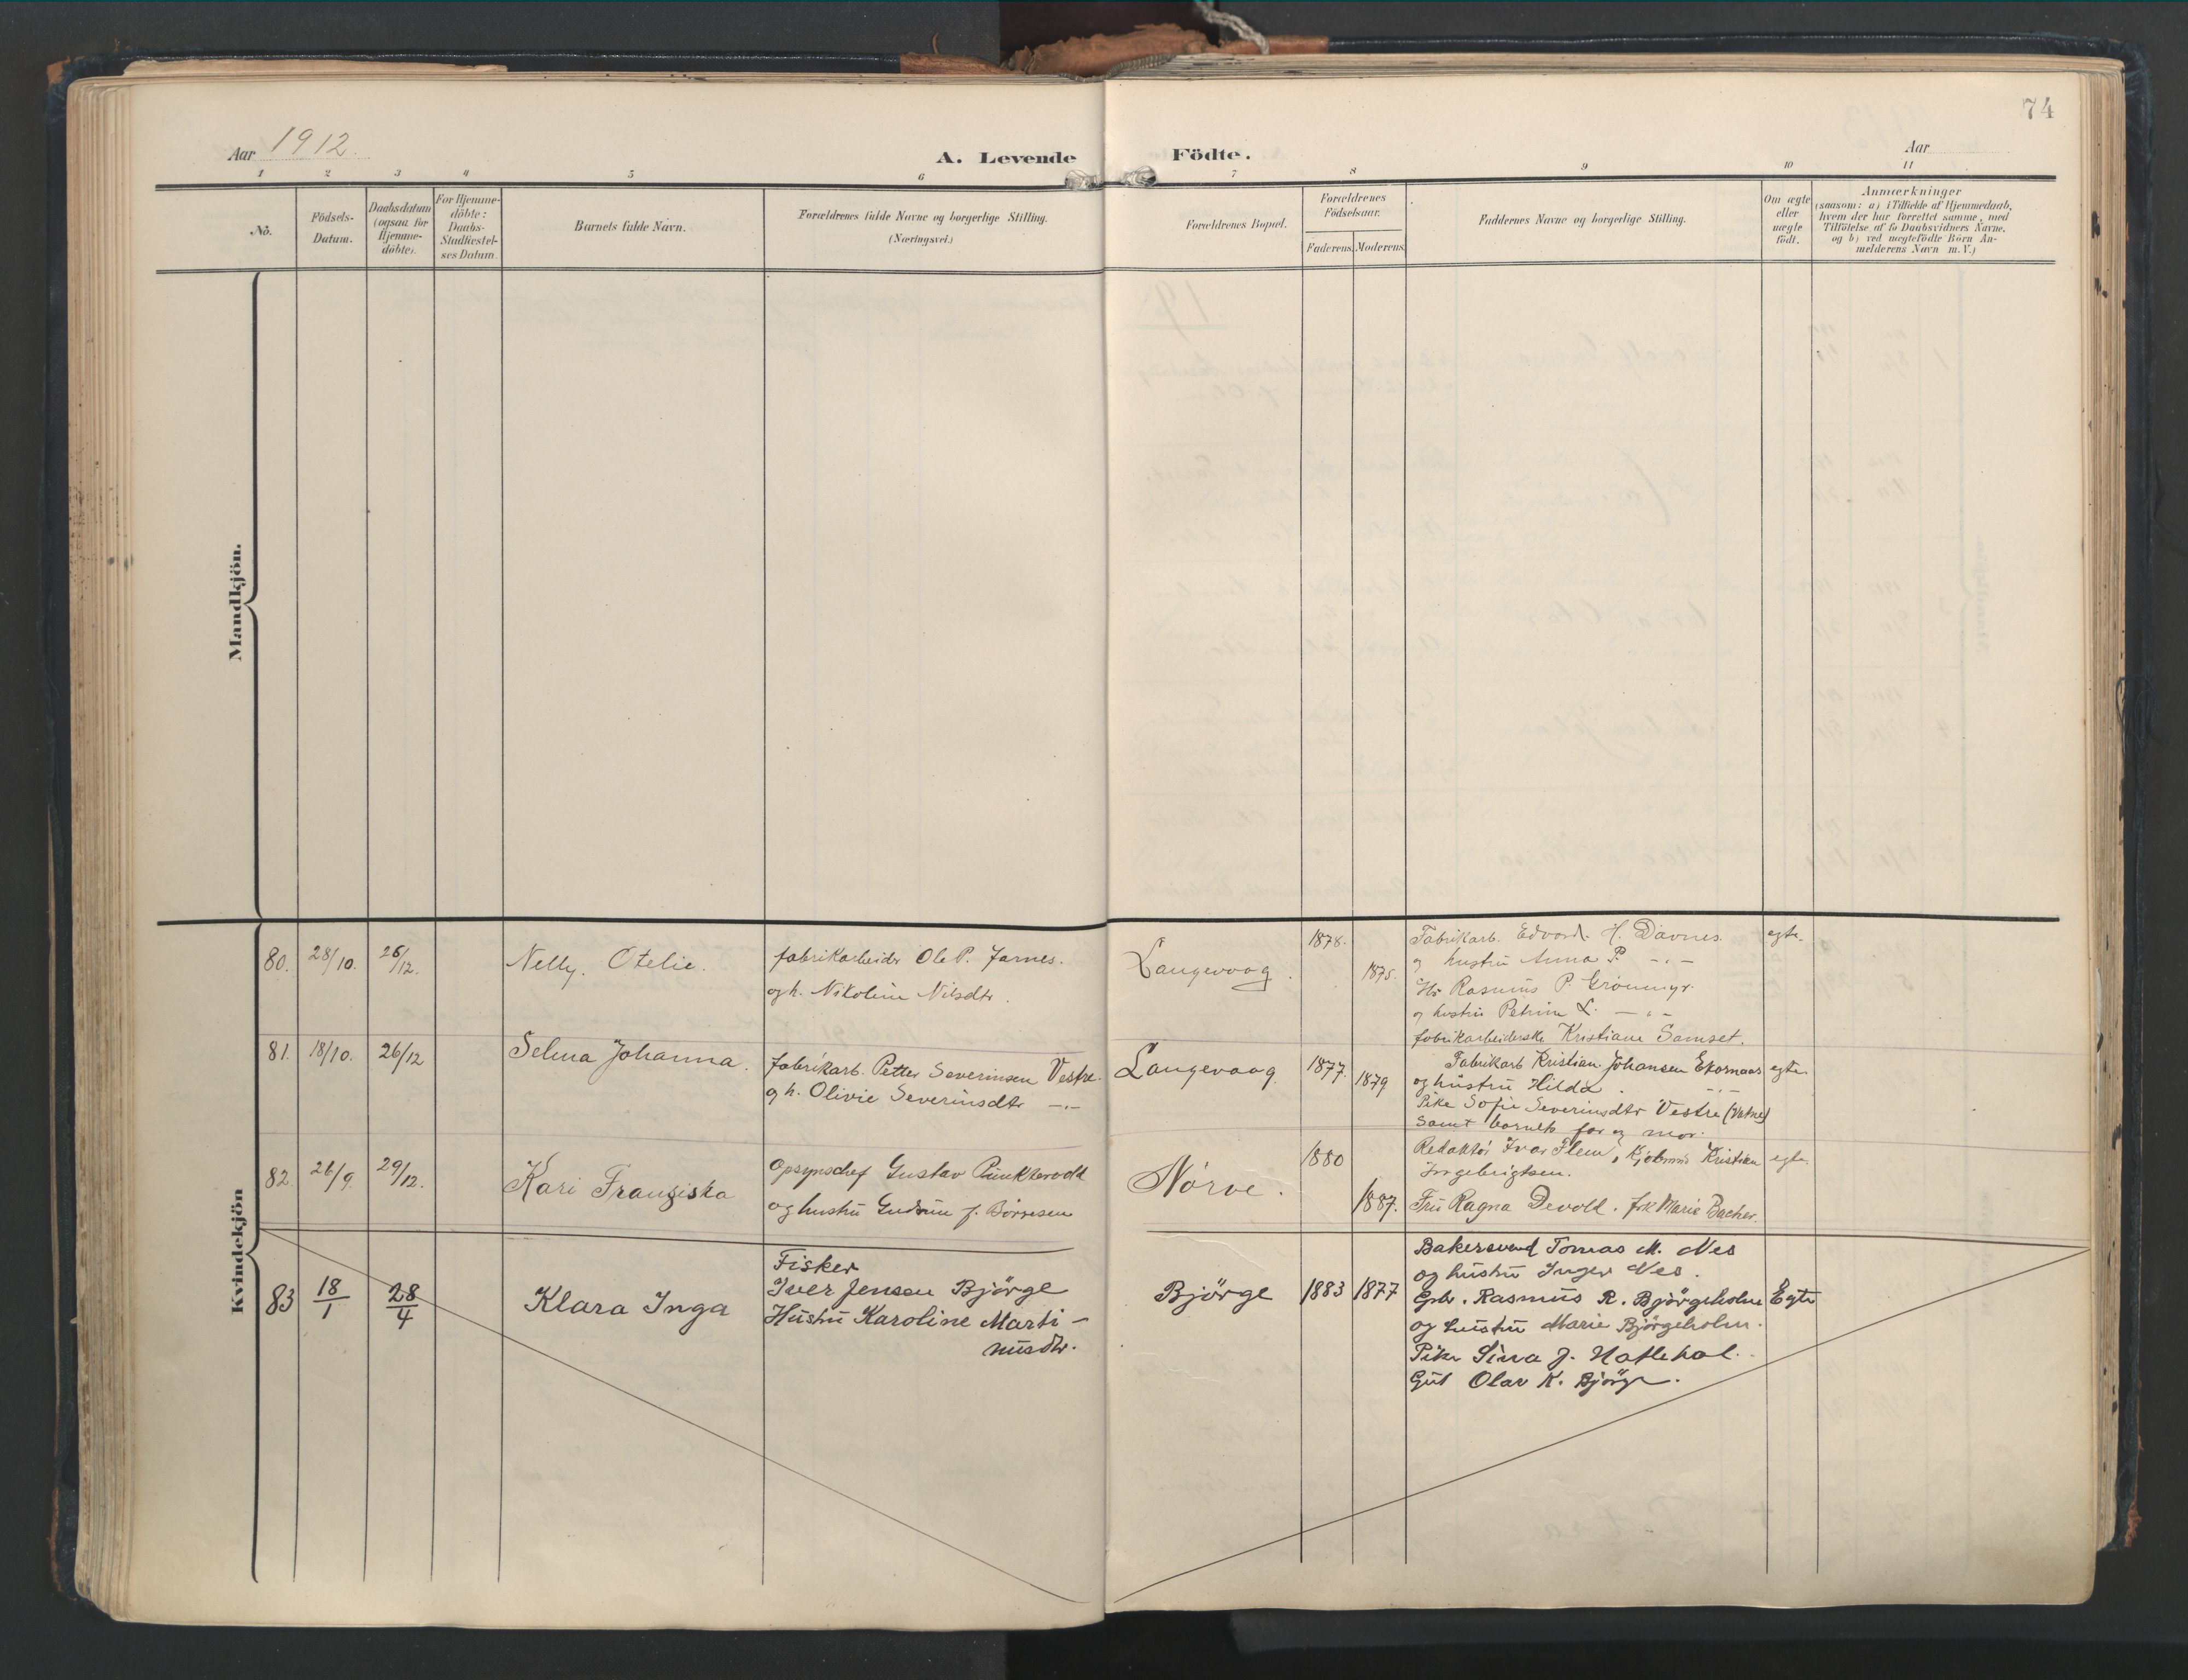 74
Aar 1912.
A. Levende Födte.
Aar
1 2 3 4 5 6 7 8 9 10 11
No.
Födsels-
Datum.
Daabsdatum
(ogsaa for
Hjemme-
döbte).
For Hjemme-
döbte:
Daabs-
Stadfæstel-
ses Datum.
Barnets fulde Navn.
Forældrenes fulde Navne og borgerlige Stilling.
(Næringsvei.)
Forældrenes Bopæl.
Forældrenes
Födselsaar.
Faderens. Moderens.
Faddernes Navne og borgerlige Stilling.
Om ægte
eller
uægte
födt.
Anmærkninger
(saasom: a) i Tilfælde af Hjemmedaab,
hvem der har forrettet samme, med
Tilföielse af to Daabsvidners Navne.
og b) ved uægtefödte Börn An-
melderens Navn m. V.)
Mandkjön.
Kvindekjön
80. 28/10. 26/12. Nelly. Otelie.
fabrikarbeider Ole P. Jarnes.
og h. Nikoline Nilsdtr.
Langevaag.
1878.
1875.
Fabrikarb. Edvard. H. Davnes.
og hustru Anna P. -.-
Hr Rasmus P. Grönmyr.
og hustru Petrine L. -.-
fabrikarbeiderske Kristiane Samset.
egte.
81. 18/10. 26/12 Selma Johanna.
fabrikarb. Petter Severinsen Vestre.
og h. Olivie Severinsdtr -.-
Langevaag
1877.
1879
Fabrikarb Kristian Johansen Ekornaas
og hustru Hilda -.-
Pike Sofie Severinsdtr Vestre (Vatne)
Samt barnets far og mor.
egte.
82. 26/9. 29/12. Kari Franziska
Opsynschef Gustav Punktervold
og hustru Gudrun f. Börresen
Nörve.
1880
1887.
Redaktör Ivar Flem, Kjöbm. Kristian
Ingebrigtsen.
Fru Ragna Devold. frk Marie Bacher.
egte.
83 18/1 28/4 Klara Inga
Fisker
Iver Jensen Björge
Hustru Karoline Marti-
nusdtr.
Björge
1883 1877
Bakersvend Tomas M. Nes
og hustru Inger Nes.
Gbr. Rasmus R. Björgeholm
og hustru Marie Björgeholm.
Pike Sina J. Hatlehol.
Gut Olav K. Björge.
Egte